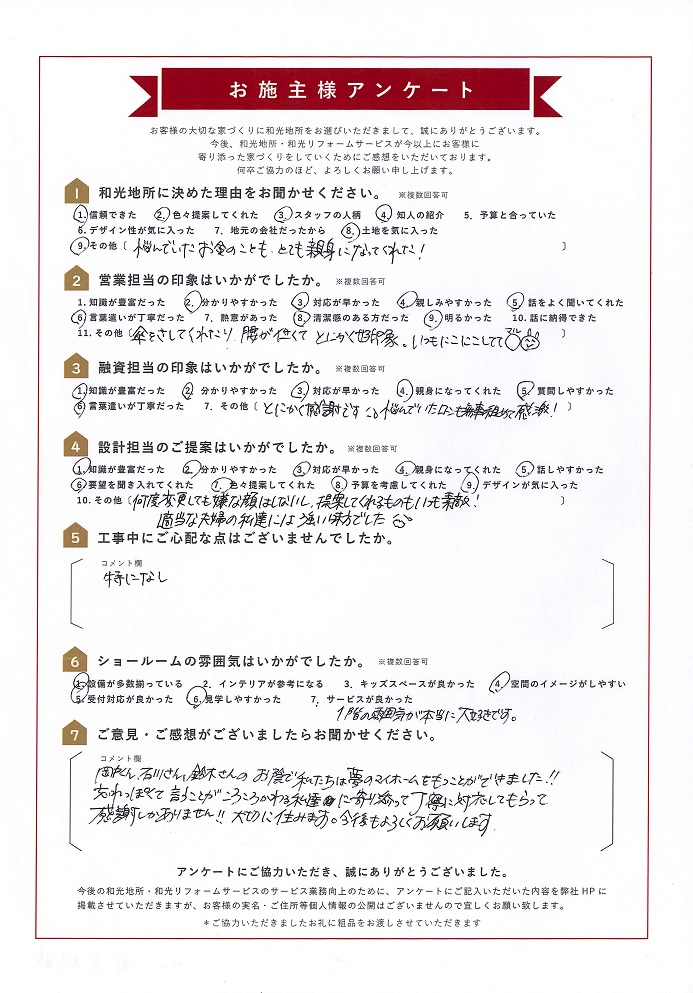 お施主様アンケート
お客様の大切な家づくりに和光地所をお選びいただきまして、誠にありがとうございます。
今後、和光地所・和光リフォームサービスが今以上にお客様に
寄り添った家づくりをしていくためにご感想をいただいております。
何卒ご協力のほど、よろしくお願い申し上げます。
1 和光地所に決めた理由をお聞かせください。 ※複数回答可
1. 信頼できた 2. 色々提案してくれた 3. スタッフの人柄 4. 知人の紹介 5. 予算と合っていた
6. デザイン性が気に入った 7. 地元の会社だったから 8. 土地を気に入った
9. その他〔 悩んでいたお金のことも とても親身になってくれた! 〕
2 営業担当の印象はいかがでしたか。 ※複数回答可
1. 知識が豊富だった 2. 分かりやすかった 3. 対応が早かった 4. 親しみやすかった 5. 話をよく聞いてくれた
6. 言葉遣いが丁寧だった 7. 熱意があった 8. 清潔感のある方だった 9. 明るかった 10. 話に納得できた
11. その他〔 傘をさしてくれたり、腰が低くて とにかく好印象。いつもにこにこしてて 〕
3 融資担当の印象はいかがでしたか。 ※複数回答可
1. 知識が豊富だった 2. 分かりやすかった 3. 対応が早かった 4. 親身になってくれた 5. 質問しやすかった
6. 言葉遣いが丁寧だった 7. その他〔 とにかく感謝です 悩んでいたローンも無事組めて感激! 〕
4 設計担当のご提案はいかがでしたか。 ※複数回答可
1. 知識が豊富だった 2. 分かりやすかった 3. 対応が早かった 4. 親身になってくれた 5. 話しやすかった
6. 要望を聞き入れてくれた 7. 色々提案してくれた 8. 予算を考慮してくれた 9. デザインが気に入った
10. その他〔 何度変更しても嫌な顔はしないし、提案してくれるものもいつも素敵! 〕
適当な夫婦の私達には強い味方でした
5 工事中にご心配な点はございませんでしたか。
コメント欄
特になし
6 ショールームの雰囲気はいかがでしたか。 ※複数回答可
1. 設備が多数揃っている 2. インテリアが参考になる 3. キッズスペースが良かった 4. 空間のイメージがしやすい
5. 受付対応が良かった 6. 見学しやすかった 7. サービスが良かった
1階の雰囲気が本当に大好きです。
7 ご意見・ご感想がございましたらお聞かせください。
コメント欄
石川さん、鈴木さんのお陰で私たちは夢のマイホームをもつことができました!!
忘れっぽくて言うことがころころかわる私達に寄り添って丁寧に対応してもらって
感謝しかありません!! 大切に住みます。今後もよろしくお願いします
アンケートにご協力いただき、誠にありがとうございました。
今後の和光地所・和光リフォームサービスのサービス業務向上のために、アンケートにご記入いただいた内容を弊社HPに
掲載させていただきますが、お客様の実名・ご住所等個人情報の公開はございませんので宜しくお願い致します。
＊ご協力いただきましたお礼に粗品をお渡しさせていただきます